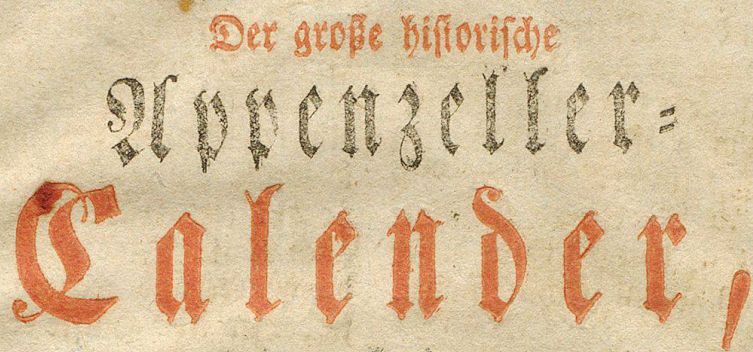 Der große historische
Appenzeller=
Calender,